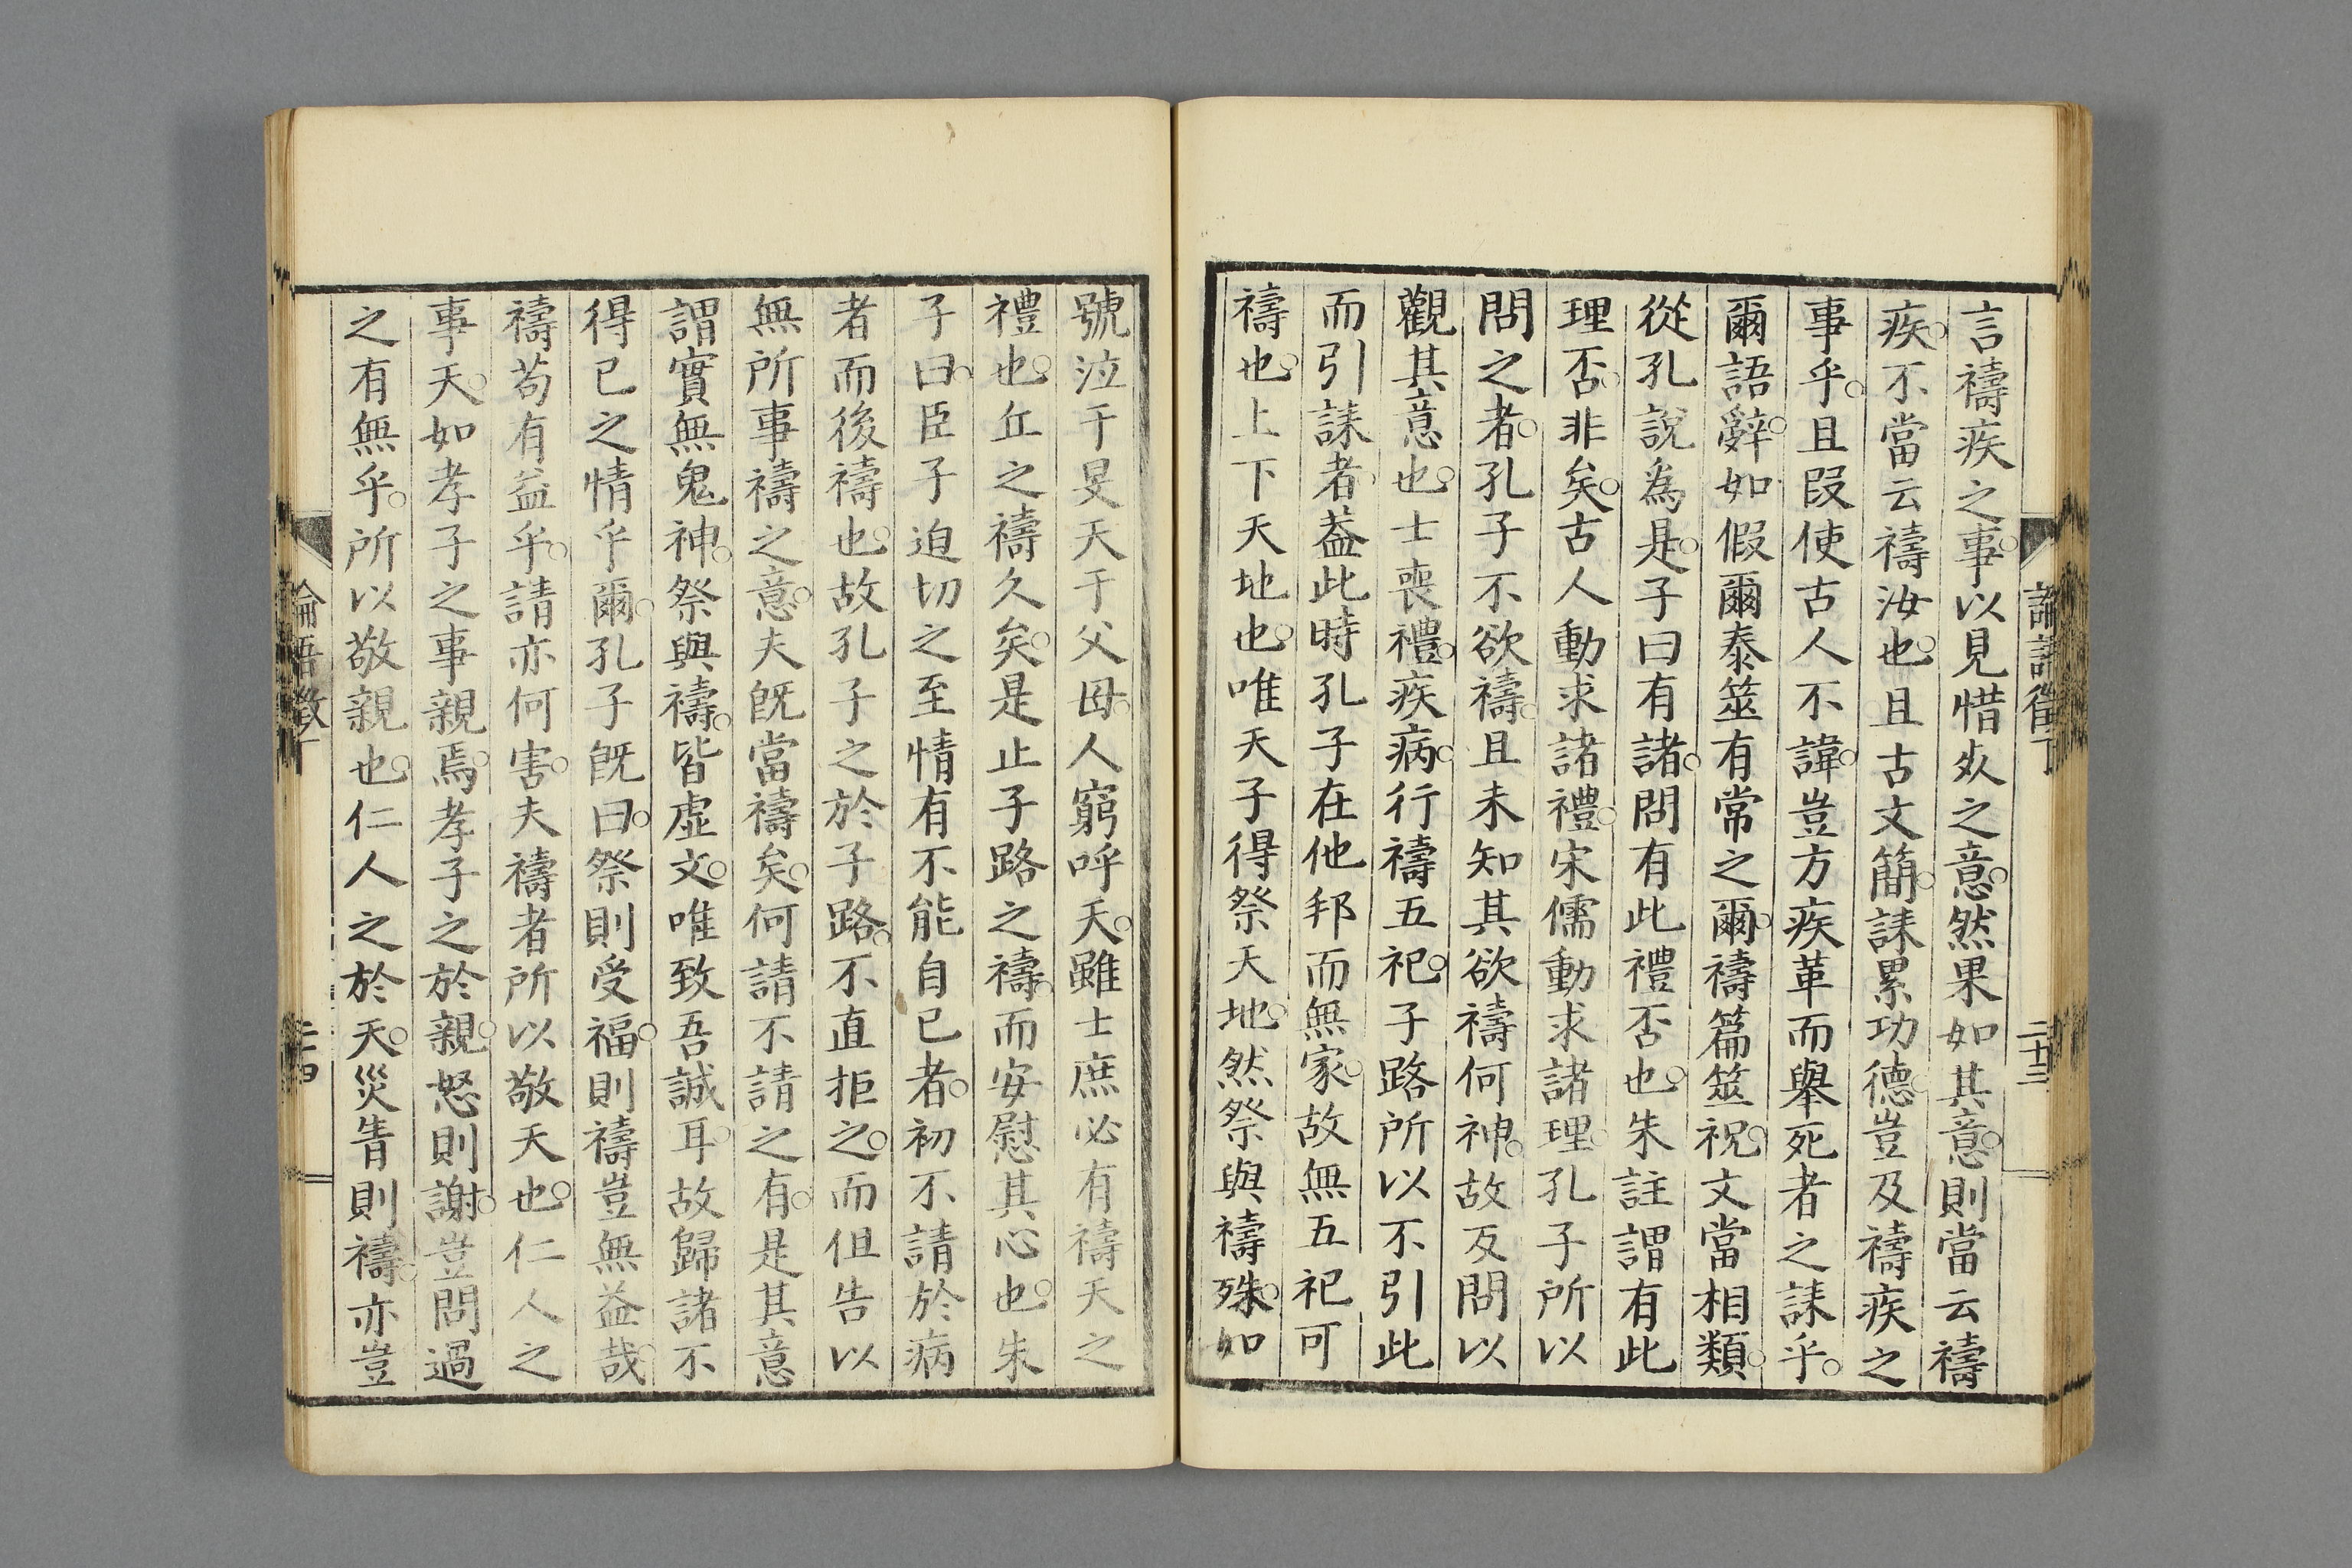 論語徵丁
二十三
言禱疾之事○以見惜𣦸之意○然果如其意○則當云禱
疾○不當云禱汝也○且古文簡○誄累功德○豈及禱疾之
事乎○且叚使古人不諱○豈方疾革而舉死者之誄乎○
爾語辭○如假爾泰筮有常之爾○禱篇筮祝○文當相類○
從孔說爲是○子曰有諸○問有此禮否也○朱註謂有此
理否○非矣○古人動求諸禮○宋儒動求諸理○孔子所以
問之者○孔子不欲禱○且未知其欲禱何神○故反問以
觀其意也○士喪禮○疾病○行禱五祀○子路所以不引此
而引誄者○益此時孔子在他邦而無家○故無五祀可
禱也○上下天地也○唯天子得祭天地○然祭與禱殊○如
號泣于旻天于父母○人窮呼天○雖士庶必有禱天之
禮也○丘之禱久矣○是止子路之禱○而安慰其心也○朱
子曰○臣子迫切之至情有不能自已者○初不請於病
者而後禱也○故孔子之於子路○不直拒之○而但告以
無所事禱之意○夫旣當禱矣○何請不請之有○是其意
謂實無鬼神○祭與禱○皆虛文○唯致吾誠耳○故歸諸不
得已之情乎爾○孔子旣曰○祭則受福○則禱豈無益哉○
禱苟有益乎○請亦何害○夫禱者所以敬天也○仁人之
事天○如孝子之事親焉○孝子之於親○怒則謝○豈問過
之有無乎○所以敬親也○仁人之於天○災眚則禱○亦豈
論語徵丁
二十四